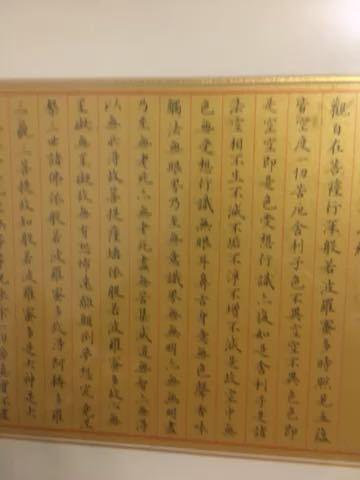 觀自在菩薩行深般若波羅蜜多時照見五蘊
皆空度一切苦厄舍利子色不異空空不異色色即
是空空即是色受想行識亦復如是舍利子是諸
法空相不生不滅不垢不淨不增不減是故空中無
色無受想行識無眼耳鼻舌身意無色聲香味
觸法無眼界乃至無意識界無無明亦無無明盡
乃至無老死亦無老死盡無苦集滅道無智亦無得
以無所得故菩提薩埵依般若波羅蜜多故心無
罣礙無罣礙故無有恐怖遠離顛倒夢想究竟涅
槃三世諸佛依般若波羅蜜多故得阿耨多羅
三藐三菩提故知般若波羅蜜多是大神是大